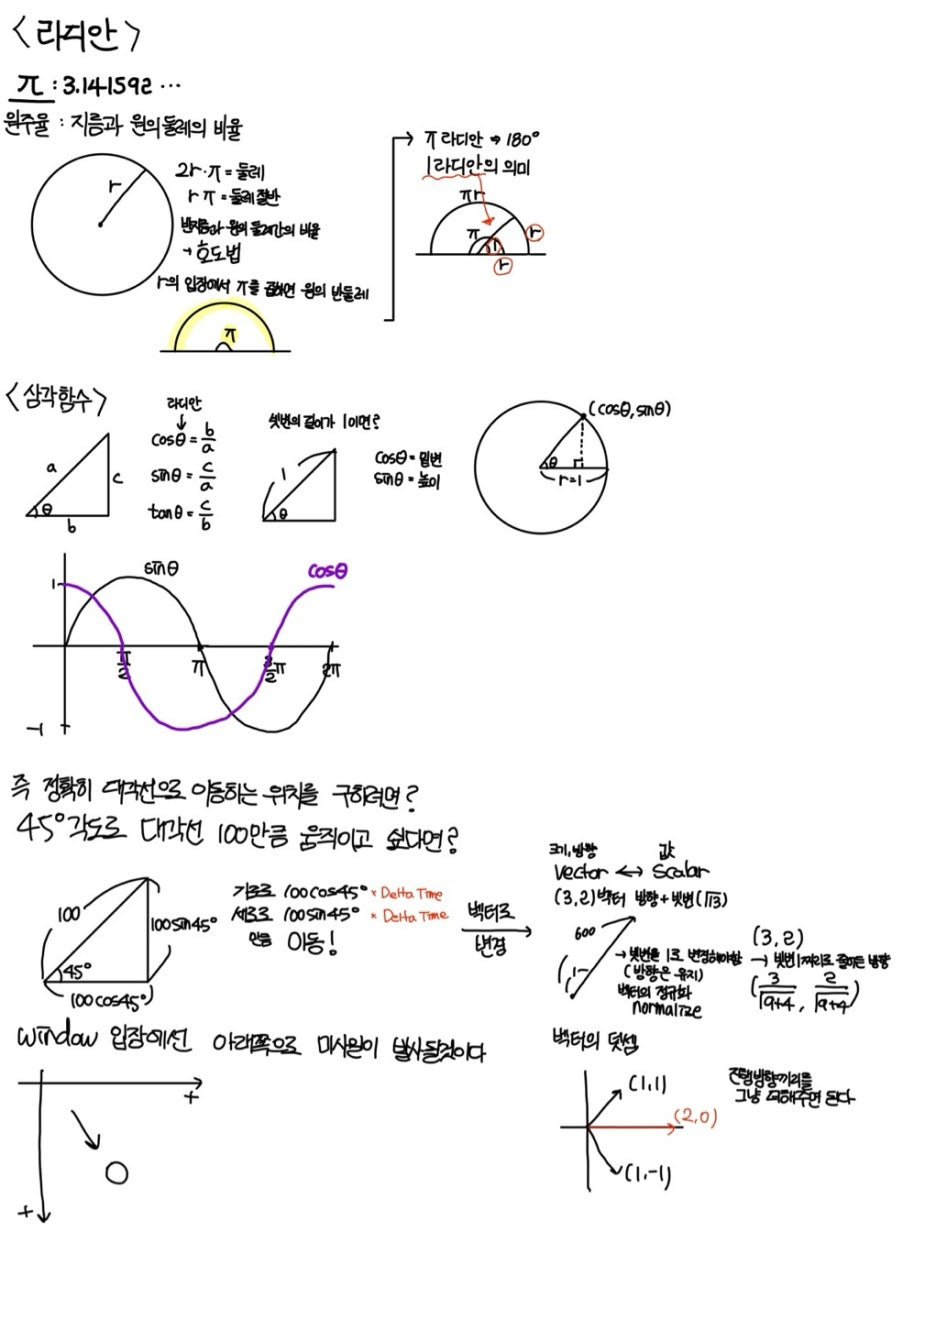 <라디안>
π : 3.141592 ...
원주율 : 지름과 원의 둘레의 비율
r
2r·π = 둘레
r π = 둘레 절반
반지름과 원의 둘레간의 비율
→ 호도법
r의 입장에서 π를 곱하면 원의 반둘레
π
π 라디안 → 180°
1라디안의 의미
πr
π
1
r
r
<삼각함수>
a
c
θ
b
라디안
↓
cosθ = b/a
sinθ = c/a
tanθ = c/b
빗변의 길이가 1이면?
1
θ
cosθ = 밑변
sinθ = 높이
(cosθ, sinθ)
θ
r=1
sinθ
cosθ
1
π/2
π
3/2π
2π
-1
즉 정확히 대각선으로 이동하는 위치를 구하려면?
45° 각도로 대각선 100만큼 움직이고 싶다면?
100
100sin45°
45°
100cos45°
가로로 100cos45° × Delta Time
세로로 100sin45° × Delta Time
만큼 이동!
벡터로
변경
크기, 방향
값
Vector ↔ Scalar
(3,2)벡터 방향 + 빗변(√13)
600
1
→ 빗변을 1로 변경해야함
(방향은 유지)
벡터의 정규화
normalize
(3,2)
→ 빗변 1짜리로 줄어든 방향
(3/√9+4, 2/√9+4)
window 입장에선 아래쪽으로 미사일이 발사될것이다
+
+
벡터의 덧셈
(1,1)
(2,0)
(1,-1)
진행방향끼리를
그냥 더해주면 된다